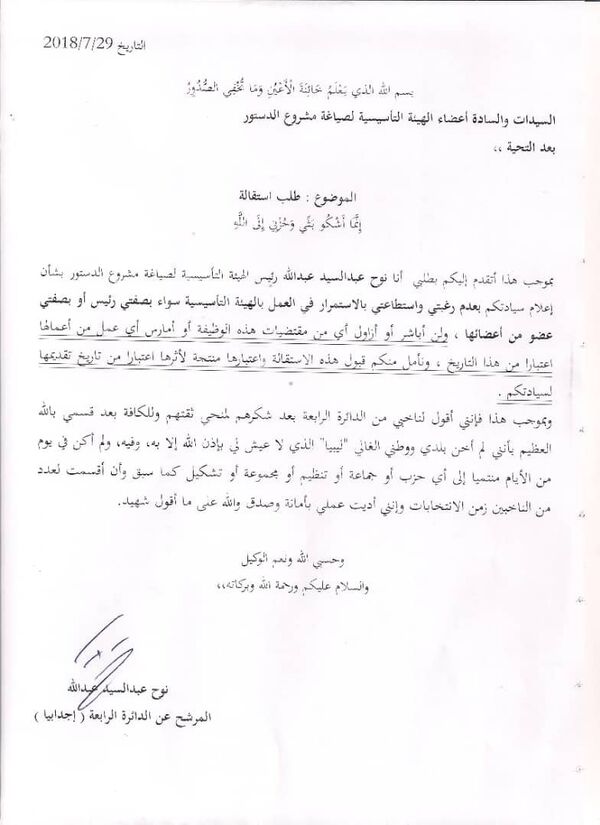 التاريخ 2018/7/29
بسم الله الذي يَعْلَمُ خَائِنَةَ الْأَعْيُنِ وَمَا تُخْفِي الصُّدُورُ
السيدات والسادة أعضاء الهيئة التأسيسية لصياغة مشروع الدستور
بعد التحية ،،
الموضوع : طلب استقالة
إِنَّمَا أَشْكُو بَثِّي وَحُزْنِي إِلَى اللَّهِ
بموجب هذا أتقدم إليكم بطلبي أنا نوح عبدالسيد عبدالله رئيس الهيئة التأسيسية لصياغة مشروع الدستور بشأن
إعلام سيادتكم بعدم رغبتي واستطاعتي بالاستمرار في العمل بالهيئة التأسيسية سواء بصفتي رئيس أو بصفتي
عضو من أعضائها ، ولن أباشر أو أزاول أي من مقتضيات هذه الوظيفة أو أمارس أي عمل من أعمالها
اعتبارا من هذا التاريخ ، ونأمل منكم قبول هذه الاستقالة واعتبارها منتجة لأثرها اعتبارا من تاريخ تقديمها
لسيادتكم .
وبموجب هذا فإنني أقول لناخبي من الدائرة الرابعة بعد شكرهم لمنحي ثقتهم وللكافة بعد قسمي بالله
العظيم بأنني لم أخن بلدي ووطني الغالي "ليبيا" الذي لا عيش لي بإذن الله إلا به، وفيه، ولم أكن في يوم
من الأيام منتميا إلى أي حزب أو جماعة أو تنظيم أو مجموعة أو تشكيل كما سبق وأن أقسمت لعدد
من الناخبين زمن الانتخابات وإنني أديت عملي بأمانة وصدق والله على ما أقول شهيد.
وحسبي الله ونعم الوكيل
والسلام عليكم ورحمة الله وبركاته،،
نوح عبدالسيد عبدالله
المرشح عن الدائرة الرابعة ( إجدابيا )